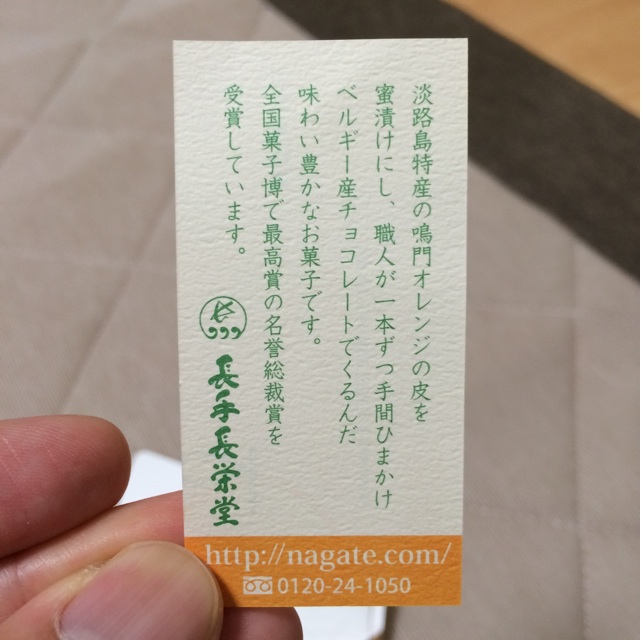 淡路島特産の鳴門オレンジの皮を
蜜漬けにし、職人が一本ずつ手間ひまかけ
ベルギー産チョコレートでくるんだ
味わい豊かなお菓子です。
全国菓子博で最高賞の名誉総裁賞を
受賞しています。
長手長栄堂
http://nagate.com/
0120-24-1050